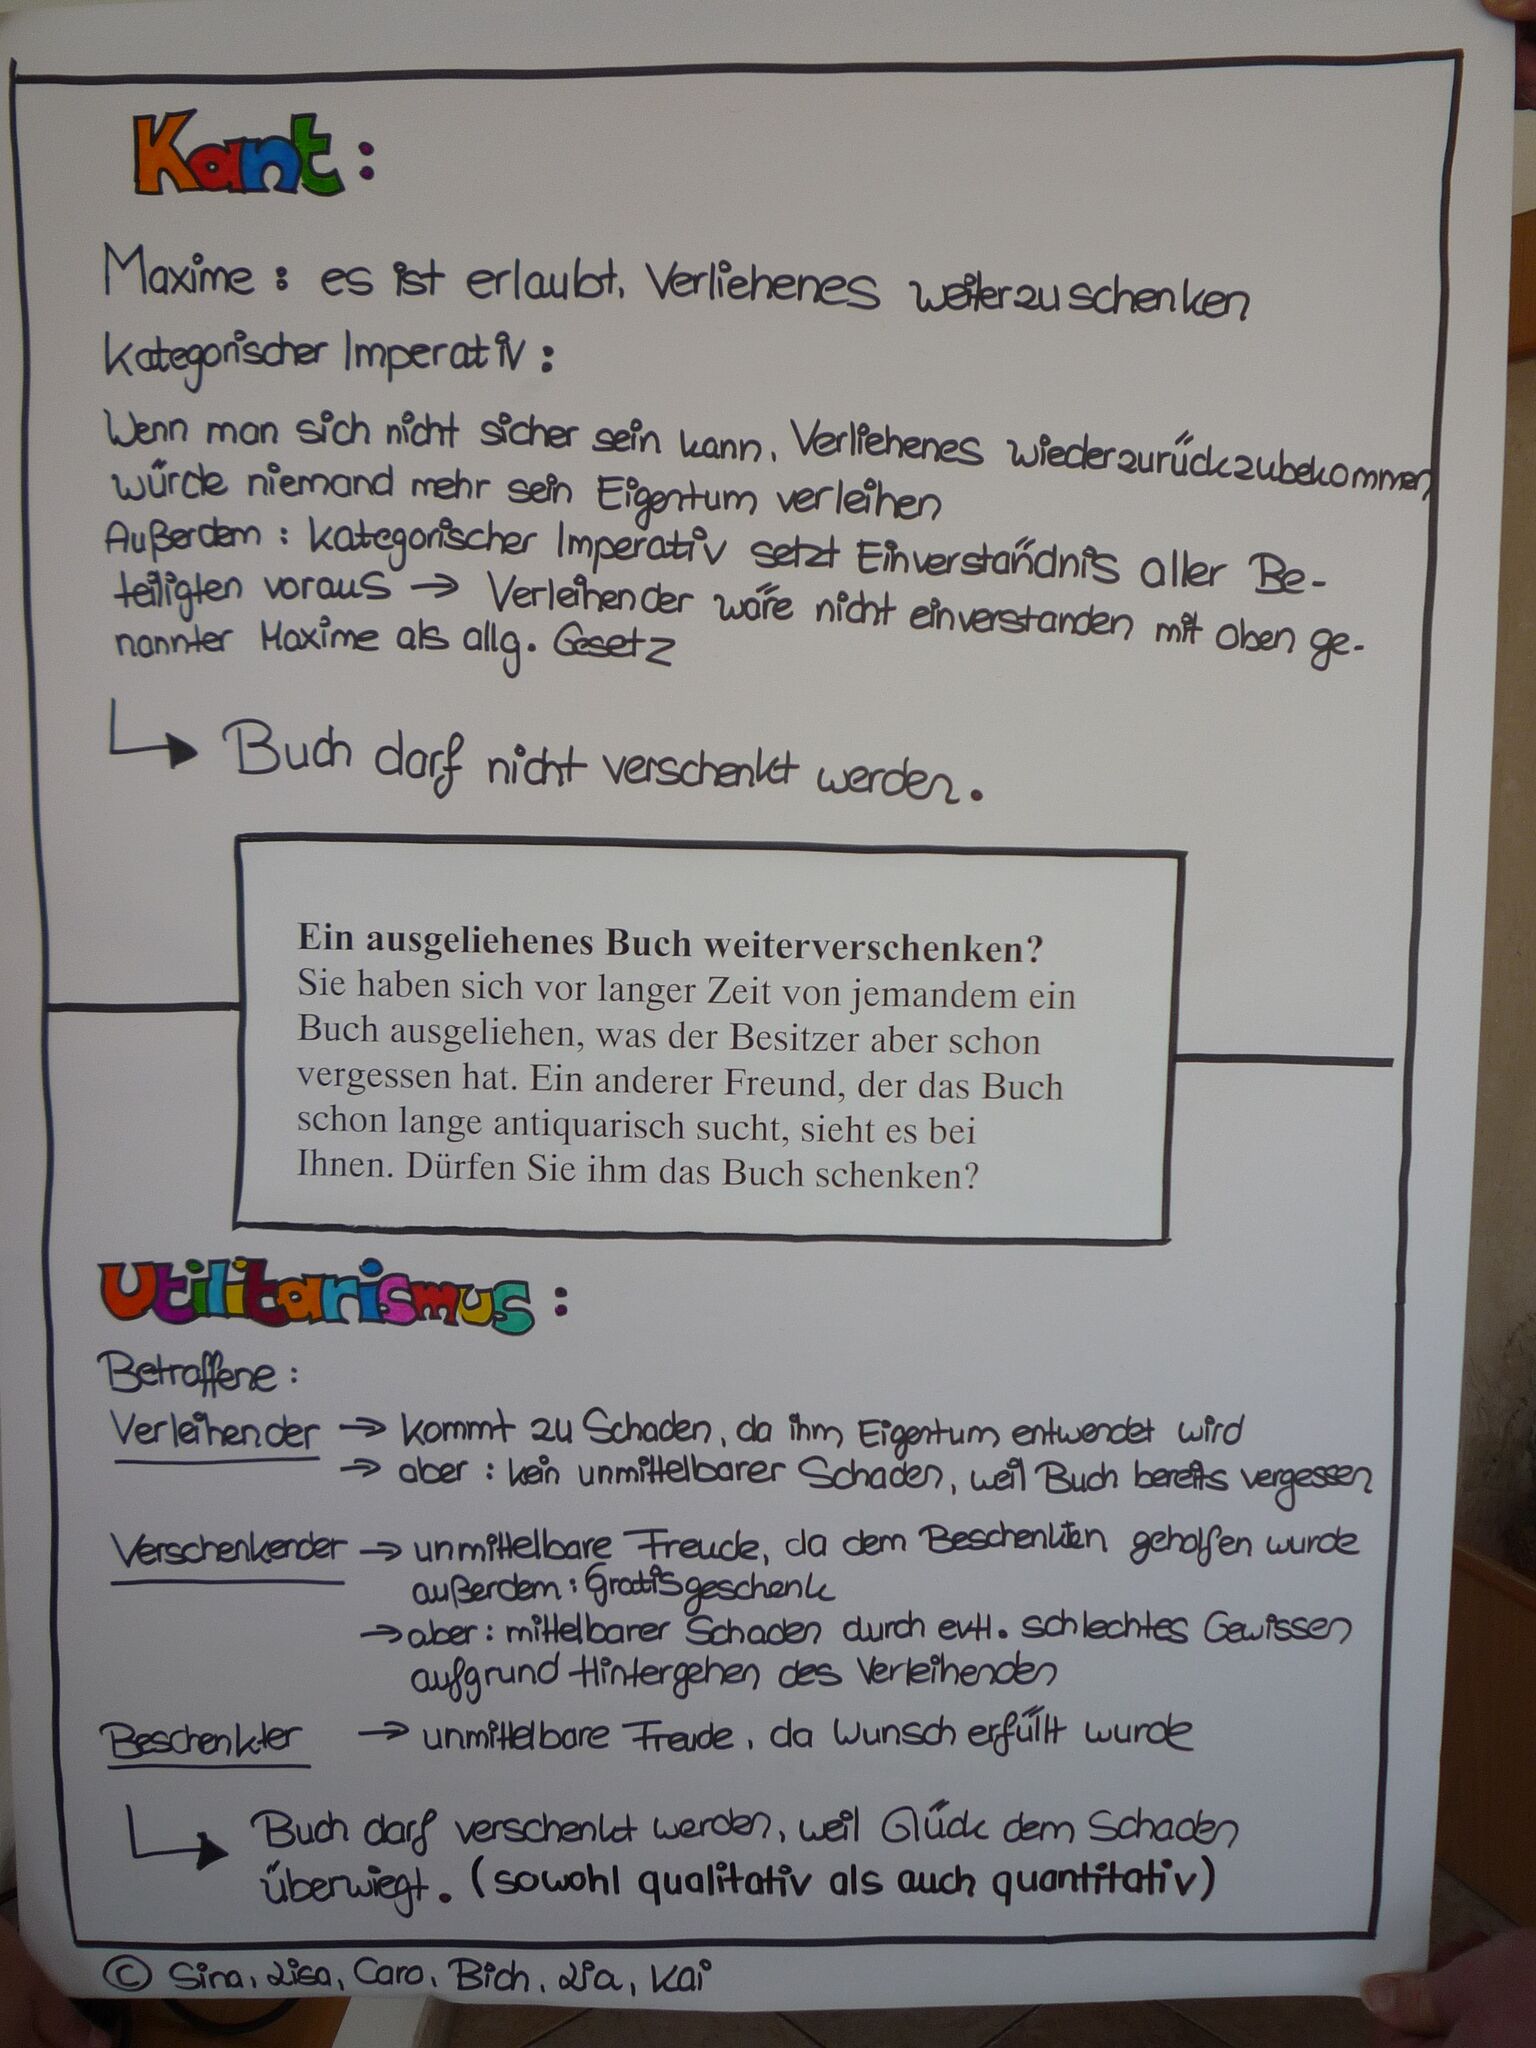 Kant:
Maxime: es ist erlaubt, Verliehenes weiterzuschenken
Kategorischer Imperativ:
Wenn man sich nicht sicher sein kann, Verliehenes wiederzurückzubekommen,
würde niemand mehr sein Eigentum verleihen
Außerdem: Kategorischer Imperativ setzt Einverständnis aller Be-
teiligten voraus → Verleihender wäre nicht einverstanden mit oben ge-
nannter Maxime als allg. Gesetz
Buch darf nicht verschenkt werden.
Ein ausgeliehenes Buch weiterverschenken?
Sie haben sich vor langer Zeit von jemandem ein
Buch ausgeliehen, was der Besitzer aber schon
vergessen hat. Ein anderer Freund, der das Buch
schon lange antiquarisch sucht, sieht es bei
Ihnen. Dürfen Sie ihm das Buch schenken?
Utilitarismus:
Betroffene:
Verleihender → kommt zu Schaden, da ihm Eigentum entwendet wird
→ aber: kein unmittelbarer Schaden, weil Buch bereits vergessen
Verschenkender → unmittelbare Freude, da dem Beschenkten geholfen wurde
außerdem: Gratisgeschenk
→ aber: mittelbarer Schaden durch evtl. schlechtes Gewissen
aufgrund Hintergehen des Verleihenden
Beschenkter → unmittelbare Freude, da Wunsch erfüllt wurde
Buch darf verschenkt werden, weil Glück dem Schaden
überwiegt. (sowohl qualitativ als auch quantitativ)
© Sina, Lisa, Caro, Bich, Lia, Kai